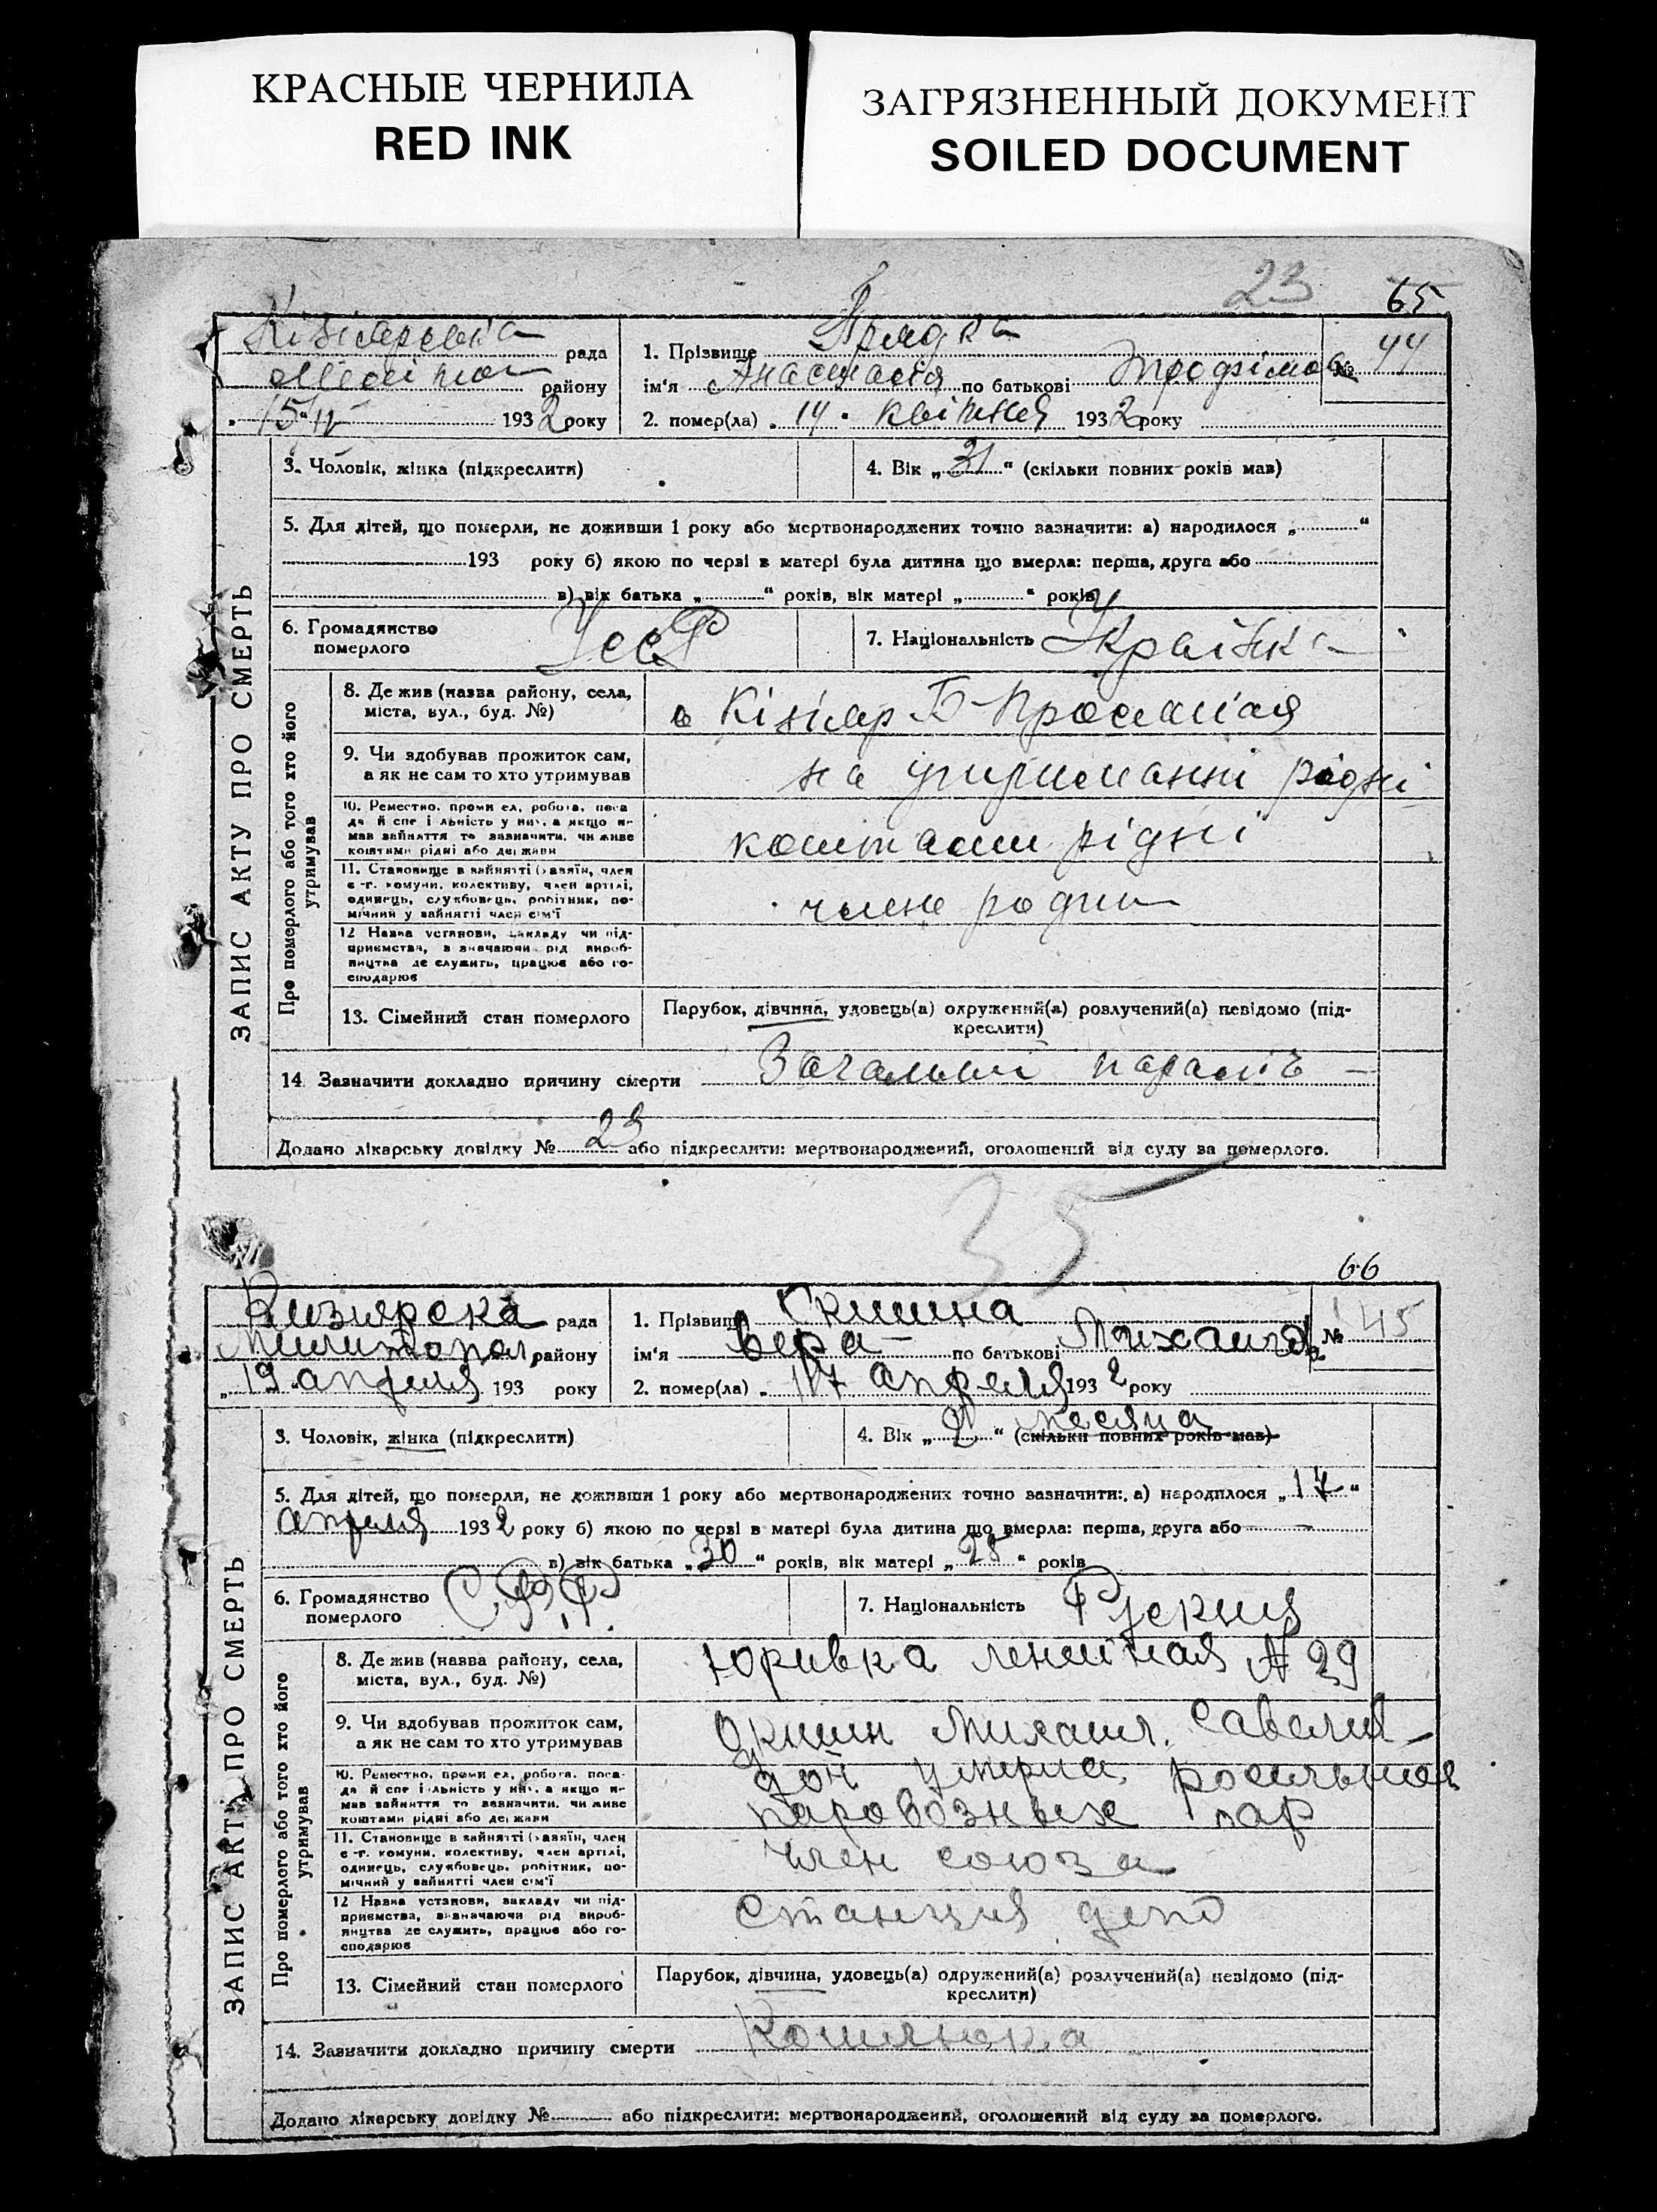 КРАСНЫЕ ЧЕРНИЛА
RED INK
ЗАГРЯЗНЕННЫЙ ДОКУМЕНТ
SOILED DOCUMENT
23
65
рада
району
15 193 2 року
1. Прізвище Прядка
ім'я Анастасія по батькові Трофімов
№ 44
2. помер(ла) „ 14 " квітня 193 2 року
ЗАПИС АКТУ ПРО СМЕРТЬ
3. Чоловік, жінка (підкреслити)
4. Вік „ 31 " (скільки повних років мав)
5. Для дітей, що померли, не доживши 1 року або мертвонароджених точно зазначити: а) народилося „ "
193 року б) якою по черзі в матері була дитина що вмерла: перша, друга або
в) вік батька „ " років, вік матері „ " років
6. Громадянство
померлого
УССР
7. Національність
Про померлого або того хто його
утримував
8. Де жив (назва району, села,
міста, вул., буд. №)
9. Чи здобував прожиток сам,
а як не сам то хто утримував
на утриманні рідні
10. Реместно, промисел, робота, поса
да й спеціяльність у них, а якщо не
мав зайняття то зазначити, чи живе
коштами рідні або держави
коштами рідні
11. Становище в зайнятті (хазяїн, член
с.-г. комуни, колективу, член артілі,
одинець, службовець, робітник, по-
мічний у зайнятті член сім'ї
член родин
12 Назва установи, закладу чи під-
приємства, зазначаючи рід вироб-
ництва де служить, працює або го-
сподарює
13. Сімейний стан померлого
Парубок, дівчина, удовець(а) одружений(а) розлучений(а) невідомо (під-
креслити)
14 Зазначити докладно причину смерти Загальний параліч
Додано лікарську довідку № 23 або підкреслити: мертвонароджений, оголошений від суду за померлого.
35
66
Кизиярска рада
району
„ 19 апреля 193 року
1. Прізвище
ім'я Вера по батькові
№ 45
2. помер(ла) „ 17 апреля 193 2 року
ЗАПИС АКТУ ПРО СМЕРТЬ
3. Чоловік, жінка (підкреслити)
4. Вік „ 2 " месяца (скільки повних років мав)
5. Для дітей, що померли, не доживши 1 року або мертвонароджених точно зазначити: а) народилося „ 17 "
апреля 193 2 року б) якою по черзі в матері була дитина що вмерла: перша, друга або
в) вік батька „ 30 " років, вік матері „ 28 " років
6. Громадянство
померлого
7. Національність
Про померлого або того хто його
утримував
8. Де жив (назва району, села,
міста, вул., буд. №)
Юривка № 29
9. Чи здобував прожиток сам,
а як не сам то хто утримував
Михаил. Савелий
10. Реместно, промисел, робота, поса-
да й спеціяльність у них, а якщо не
мав зайняття то зазначити, чи живе
коштами рідні або держави
паровозных пар
11. Становище в зайнятті (хазяїн, член
с.-г. комуни, колективу, член артілі,
одинець, службовець, робітник, по-
мічний у зайнятті член сім'ї
член союза
12 Назва установи, закладу чи під-
приємства, зазначаючи рід вироб-
ництва де служить, працює або го-
сподарює
Станция депо
13. Сімейний стан померлого
Парубок, дівчина, удовець(а) одружений(а) розлучений(а) невідомо (під-
креслити)
14. Зазначити докладно причину смерти
Додано лікарську довідку № або підкреслити: мертвонароджений, оголошений від суду за померлого.